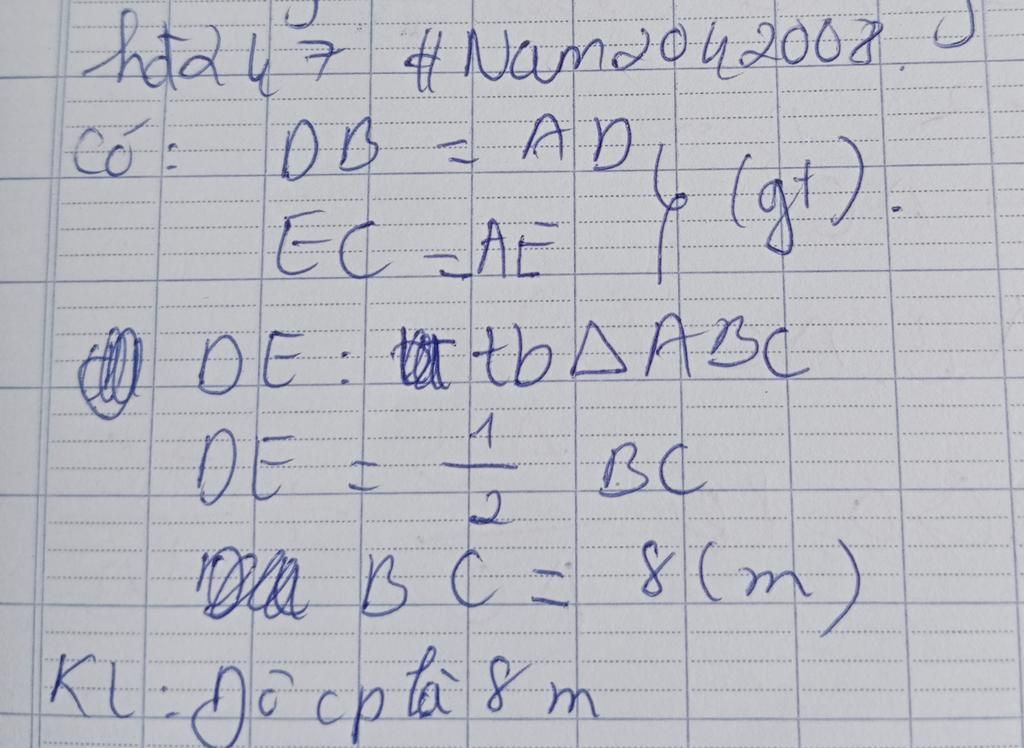 hđ247 #Nam2042008.
Có: DB = AD
EC = AE } (gt).
DE: tb Δ ABC
DE = 1/2 BC
BC = 8 (m)
KL: Độ cp là 8 m